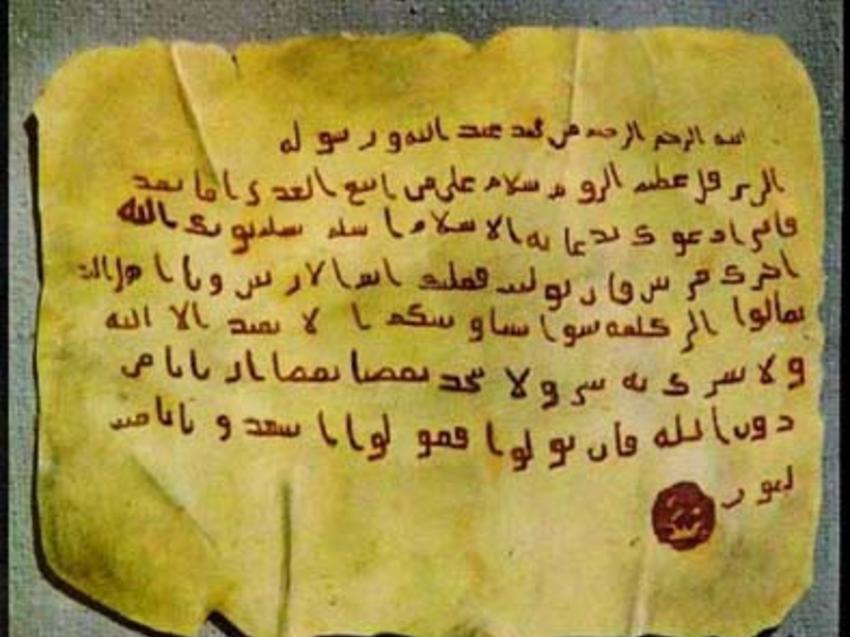 بسم الله الرحمن الرحيم من محمد عبد الله و رسوله
الى هرقل عظيم الروم سلام على من اتبع الهدى اما بعد
فانى ادعوك بدعاية الاسلام اسلم تسلم يوتك الله
اجرك مرتين فان توليت فعليك اثم الاريسين ويا اهل الكتاب
تعالوا الى كلمة سوا بيننا وبينكم الا نعبد الا الله
ولا نشرك به شى ولا يتخذ بعضنا بعضا اربابا من
دون الله فان تولوا فقولوا اشهدو بانا مسلمون